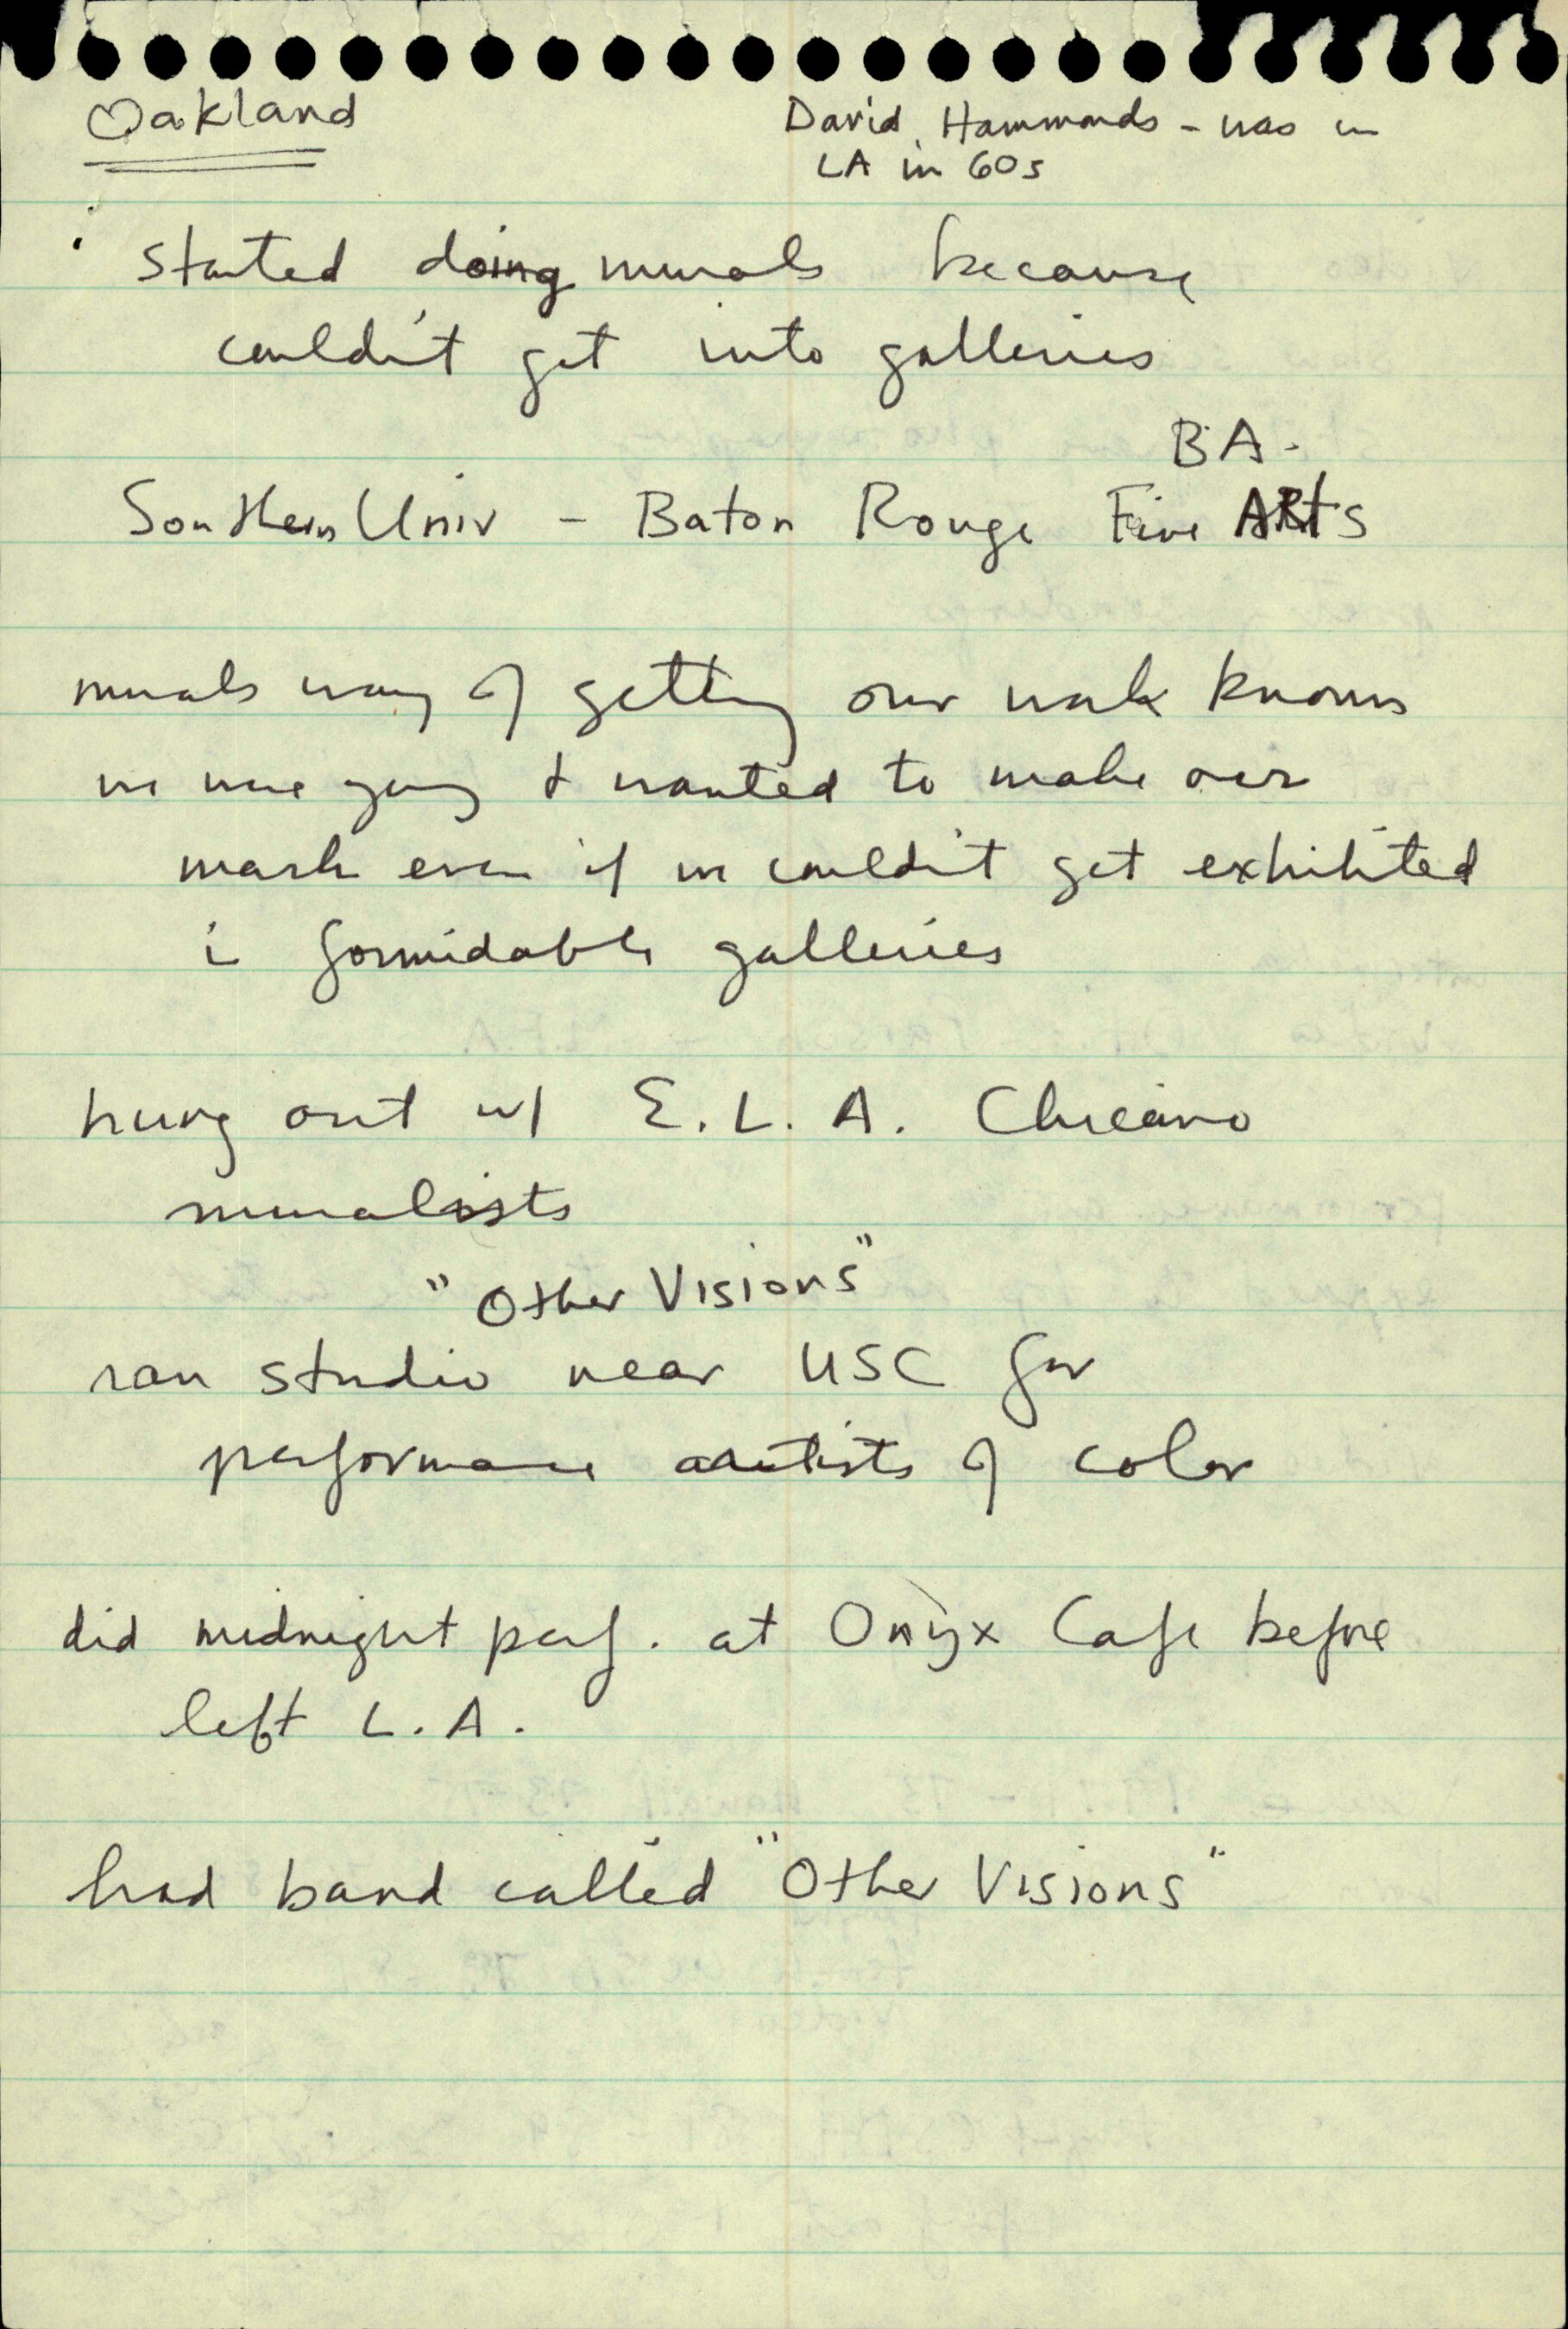 Oakland
David Hammonds - was in
LA in 60s
started doing murals because
couldn't get into galleries
BA.
Southern Univ - Baton Rouge Fine ARts
murals way of getting our work known
we were young & wanted to make our
mark even if we couldn't get exhibited
in formidable galleries
hung out w/ E.L.A. Chicano
muralists
"Other Visions"
ran studio near USC for
performance artists of color
did midnight perf. at Onyx Cafe before
left L.A.
had band called "Other Visions"